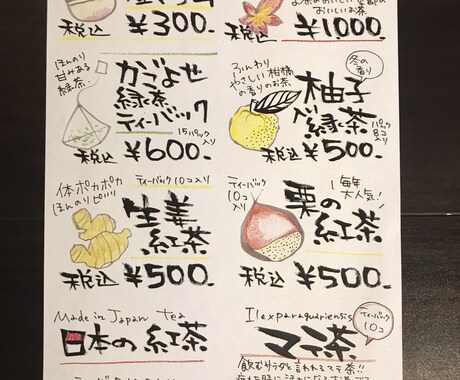 税込 ¥300-
おいしいお茶
¥1000-
ほんのり
甘みある
緑茶。
かごよせ
緑茶
ティーバック
15パック入り
税込 ¥600-
冬の
香り
ふんわり
やさしい柑橘
の香りのお茶
柚子
入り緑茶
パック
8コ入り
税込 ¥500-
体ポカポカ
ほんのりピリッ
ティーバック10コ入り
生姜
紅茶
税込 ¥500-
ティーバック
10コ
入り
毎年
大人気!
栗の
紅茶
税込 ¥500-
Made in Japan Tea
日本の紅茶
Ilexparaguariensis
ティーバック
10コ
マテ茶
飲むサラダと言われるマテ茶!!